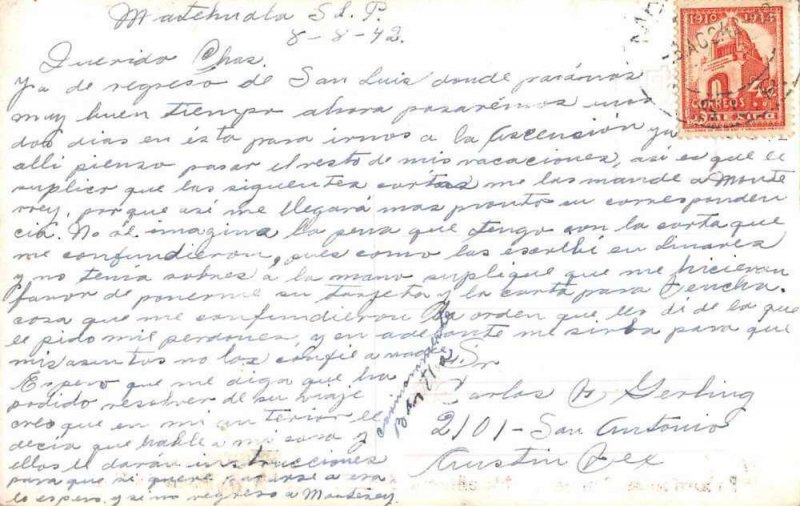 Matehuala S.L.P.
8-8-42.
Querido Chas.
Ya de regreso de San Luis donde pasamos
muy buen tiempo ahora pasaremos unos
dos dias en ésta para irnos a la Ascensión ya
alli pienso pasar el resto de mis vacaciones, así es que le
suplico que las siguentes cartas me las mande a Monte
rrey, porque así me llegará mas pronto su corresponden
cia. No se imagina la pena que tengo con la carta que
me confundieron, pues como las escribí en Linares
y no tenía sobres a la mano supliqué que me hicieran
favor de ponerme su tarjeta y la carta para Chencha.
cosa que me confundieron la orden que les di de lo que
le pido mil perdones, y en adelante me sirva para que
mis asuntos no los confíe a nadie.
Espero que me diga que ha
podido resolver de su viaje
creo que en mi anterior le
decía que hable a mi casa y
ellos le darán instrucciones
para que si quiere pasarse a esa
lo espero y si no regreso a Monterrey.
Bertha
Sr.
Carlos Gerling
2101 - San Antonio
Austin Tex
1910 1934
CORREOS